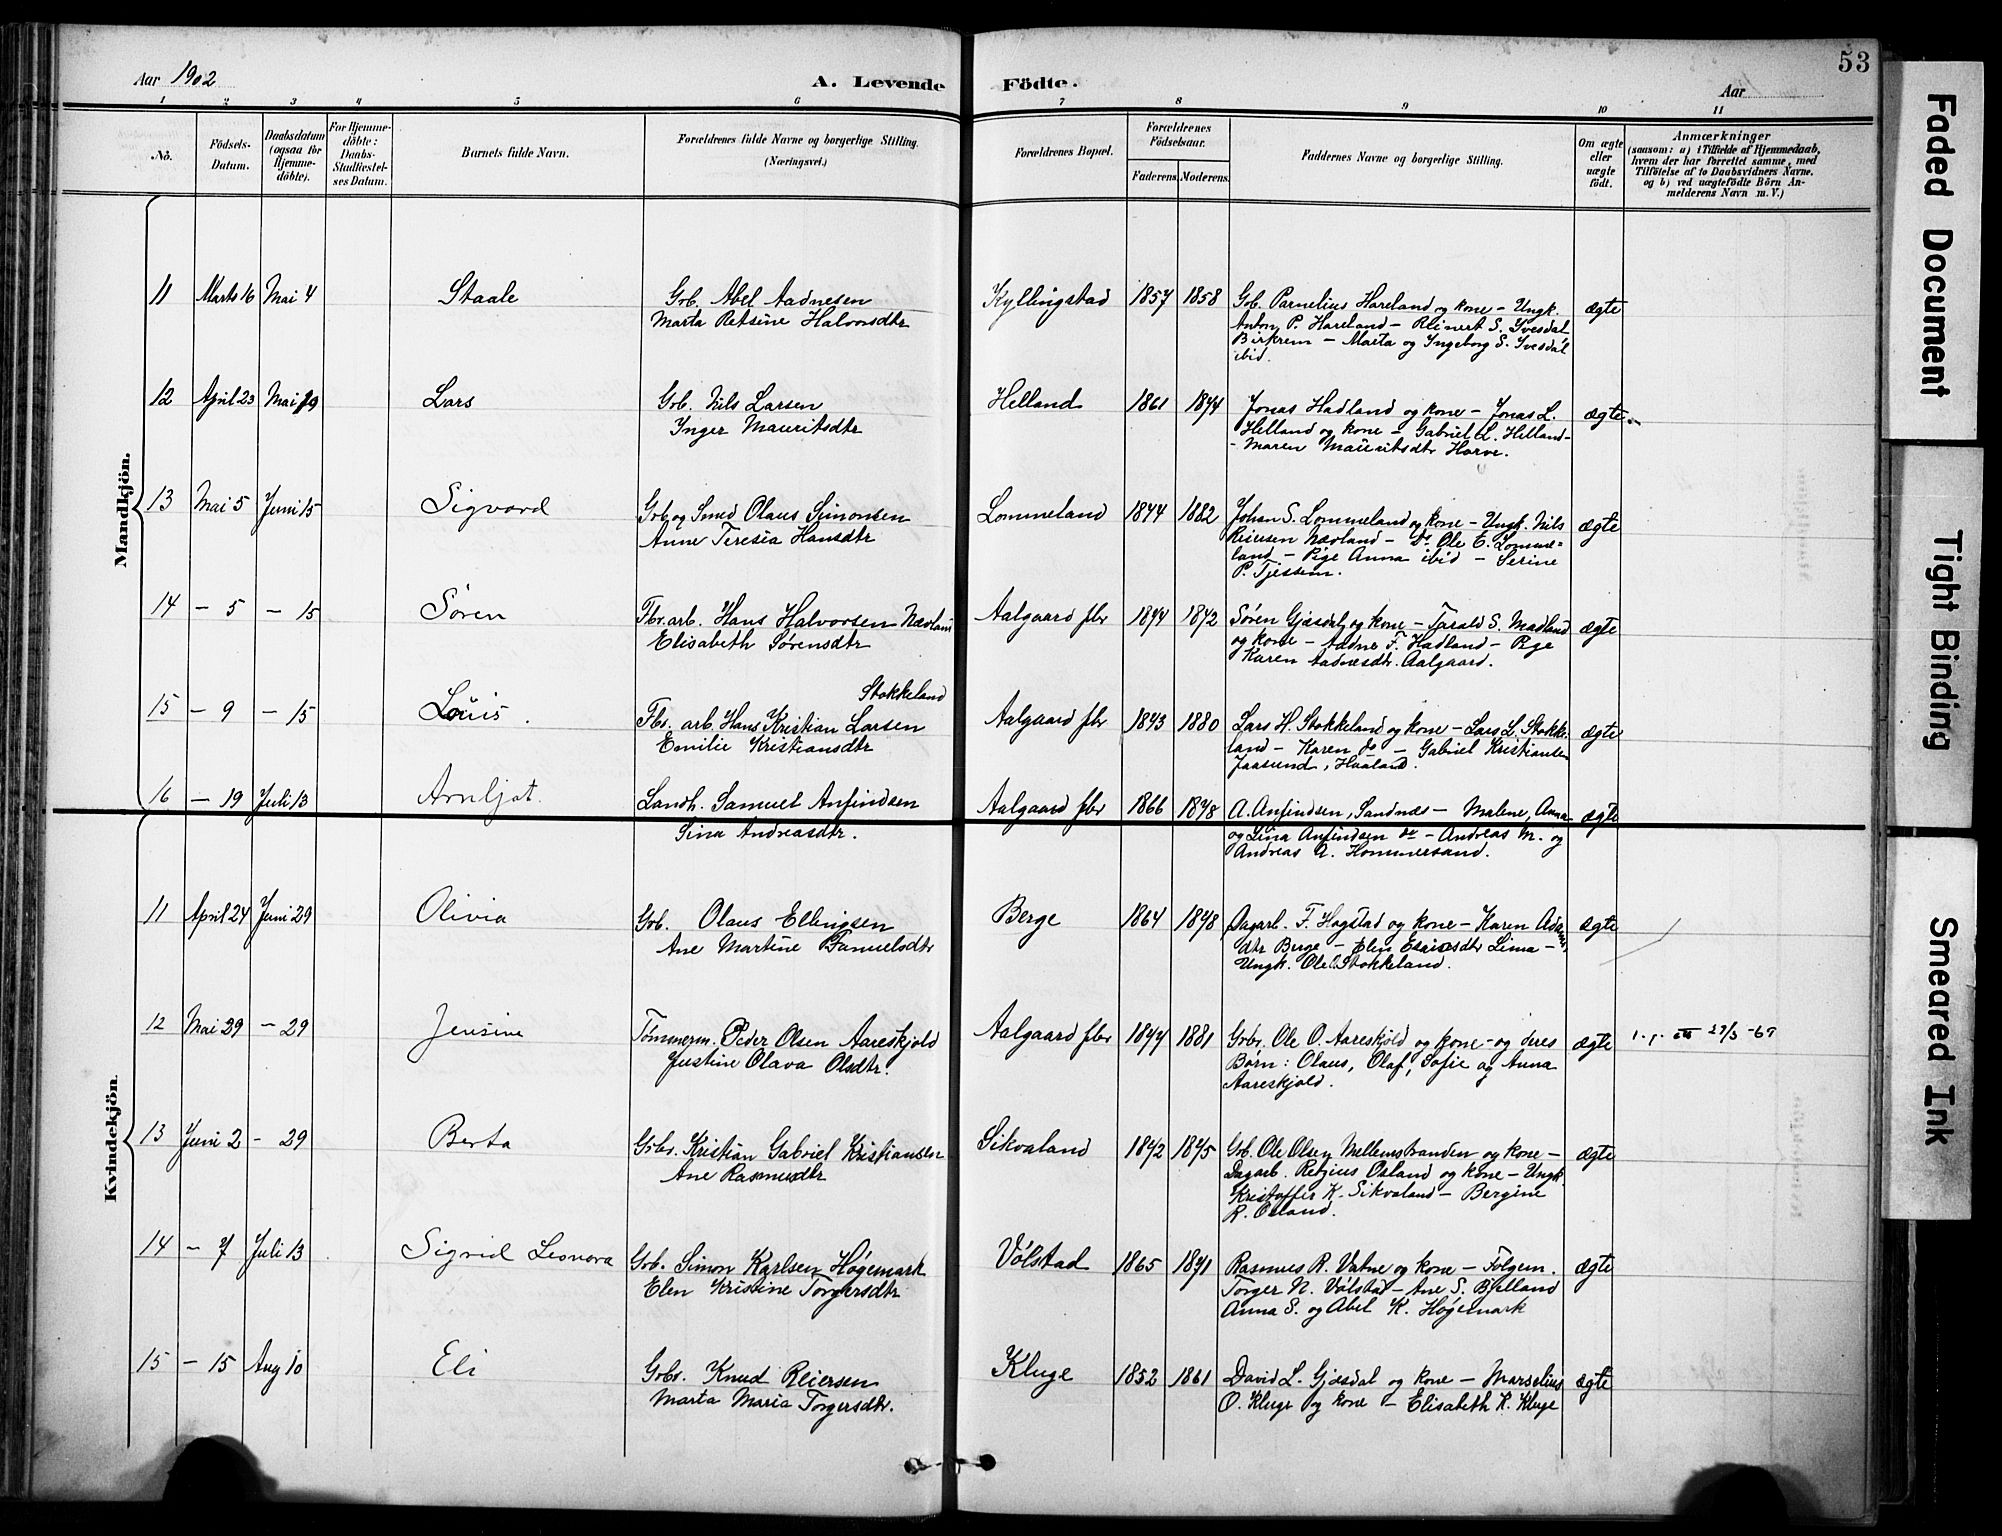 53
Aar 1902
A. Levende Födte.
Aar
1 2 3 4 5 6 7 8 9 10 11
No.
Födsels-
Datum.
Daabsdatum
(ogsaa for
Hjemme-
döbte).
For Hjemme-
döbte:
Daabs-
Stadfæstel-
ses Datum.
Barnets fulde Navn.
Forældrenes fulde Navne og borgerlige Stilling.
(Næringsvei.)
Forældrenes Bopæl.
Forældrenes
Födselsaar.
Faderens. Moderens.
Faddernes Navne og borgerlige Stilling.
Om ægte
eller
uægte
födt.
Anmærkninger
(saasom: a) i Tilfælde af Hjemmedaab,
hvem der har forrettet samme, med
Tilföielse af to Daabsvidners Navne.
og b) ved uægtefödte Börn An-
melderens Navn m. V.)
Mandkjön.
11 Marts 16 Mai 4 Staale Gb. Abel Aadnesen Kyllingstad 1857 1858 Gb. Parnelius Hareland og kone – Ungk. ægte
Marta Retsine Halvorsdtr Anton P. Hareland – Reinert S. Ivesdal
Birkrem – Marta og Ingeborg S. Ivesdal
ibid.
12 April 23 Mai 19 Lars Gb. Nils Larsen Helland 1861 1874 Jonas Hadland og kone – Jonas L. ægte
Inger Mauritsdtr Helland og kone – Gabriel L. Helland –
– Maren Mauritsdtr Horve.
13 Mai 5 Juni 15 Sigvard Gb og Smed Olaus Simonsen Lommeland 1874 1882 Johan S. Lommeland og kone – Ungk. Nils ægte
Anne Teresia Hansdtr Reiersen Nævland – Do Ole E. Lomme-
land – Pige Anna ibid – Serine
P. Tjessem.
14 – 5 – 15 Søren Fbr. arb. Hans Halvorsen Nævland Aalgaard fbr 1874 1872 Søren Gjesdal og kone – Tarald S. Madland ægte
Elisabeth Sørensdtr og kone – Aadne F. Hadland – Pige
Karen Aadnesdtr. Aalgaard.
15 – 9 – 15 Louis. Stokkeland
Fbr. arb. Hans Kristian Larsen Aalgaard fbr 1873 1880 Lars H. Stokkeland og kone – Lars L. Stokke- ægte
Emilie Kristiansdtr land – Karen do – Gabriel Kristiansen
Jaasund, Haaland.
16 – 19 Juli 13 Arnljot. Landh. Samuel Anfindsen Aalgaard fbr 1866 1878 A. Anfindsen, Sandnæs – Malene, Anna ægte
Sina Andreasdtr. og Lina Anfindsen do – Andreas M. og
Andreas A. Hommersand.
Kvindekjön.
11 April 24 Juni 29 Olivia Gb. Olaus Ellingsen Berge 1864 1878 Dagarb. F. Hogstad og kone – Karen Adams ægte
Ane Martine Samuelsdtr dtr Berge – Elen Lima –
Ungk. Ole Stokkeland.
12 Mai 29 – 29 Jensine Tømmerm. Peder Olsen Aareskjold Aalgaard fbr 1877 1881 Gbr. Ole O. Aareskjold og kone – og deres ægte 27/3 -67
Justine Olava Olsdtr. Børn: Olaus, Olaf, Sofie og Anna
Aareskjold.
13 Juni 2 – 29 Berta Gbr. Kristian Gabriel Kristiansen Sikvaland 1872 1875 Gb. Ole Olsen Mellemstranden og kone – ægte
Ane Rasmusdtr Dagarb. Retzius Osland og kone – Ungk.
Kristoffer K. Sikvaland – Bergine
R. Osland.
14 – 7 Juli 13 Sigrid Leonora Gb. Simon Karlsen Høgemark Vølstad 1865 1871 Rasmus R. Vatne og kone – Følgem. ægte
Elen Kristine Torgersdtr Torger N. Vølstad – Ane S. Bjelland
Anna S. og Abel K. Høgemark
15 – 15 Aug 10 Eli Gbr. Knud Reiersen Kluge 1852 1861 David L. Gjesdal og kone – Marselius ægte
Marta Maria Torgersdtr. O. Kluge og kone – Elisabeth K. Kluge
Faded Document
Tight Binding
Smeared Ink